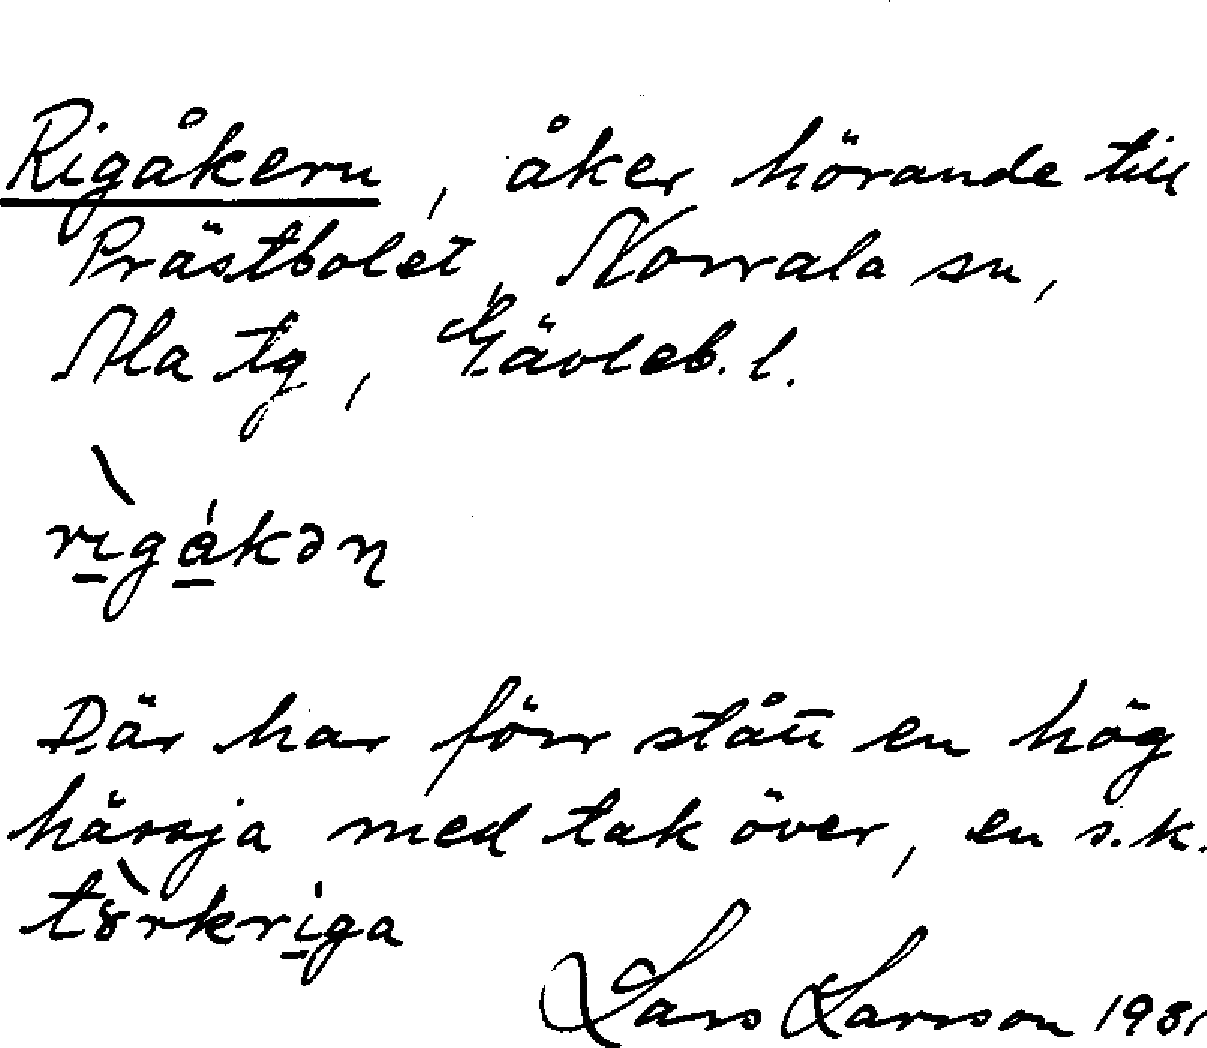 Rigåkern, åker hörande till
Prästbolet, Norrala sn,
Ala tg, Gävleb. l.
rìgákən
Där har förr stått en hög
hässja med tak över, en s.k.
tòrkriga
Lars Larsson 1981